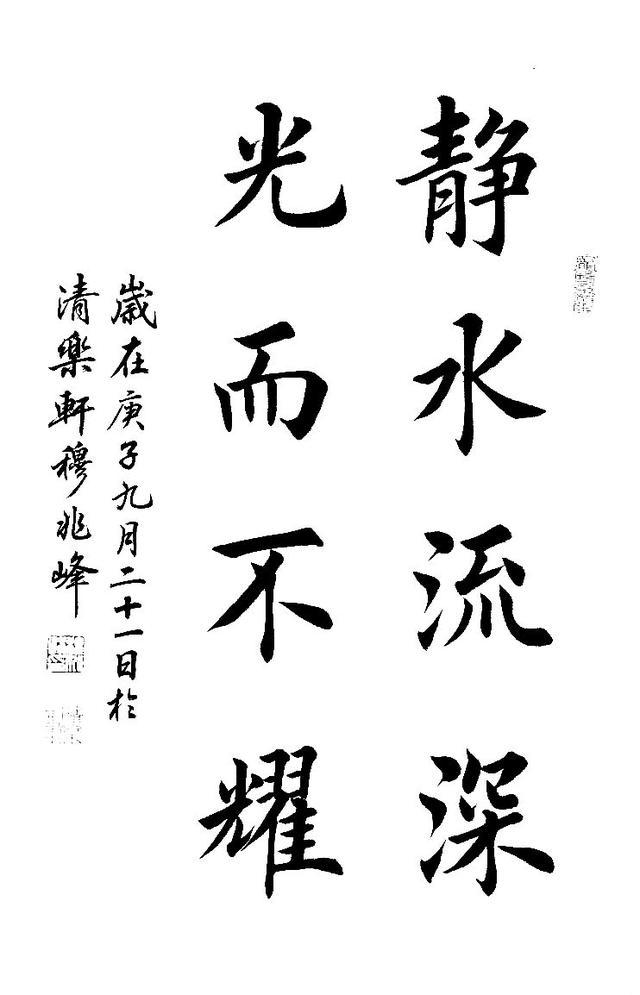 静水流深
光而不耀
歲在庚子九月二十一日於
清樂軒穆兆峰